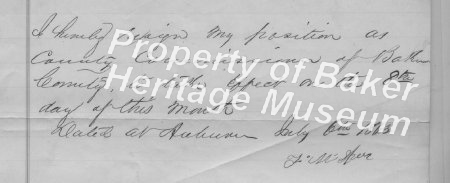 I hereby resign my position as
County Commissioner of Baker
County to take effect on the 8th
day of this Month
Dated at Auburn July 6th
Property of Baker
Heritage Museum